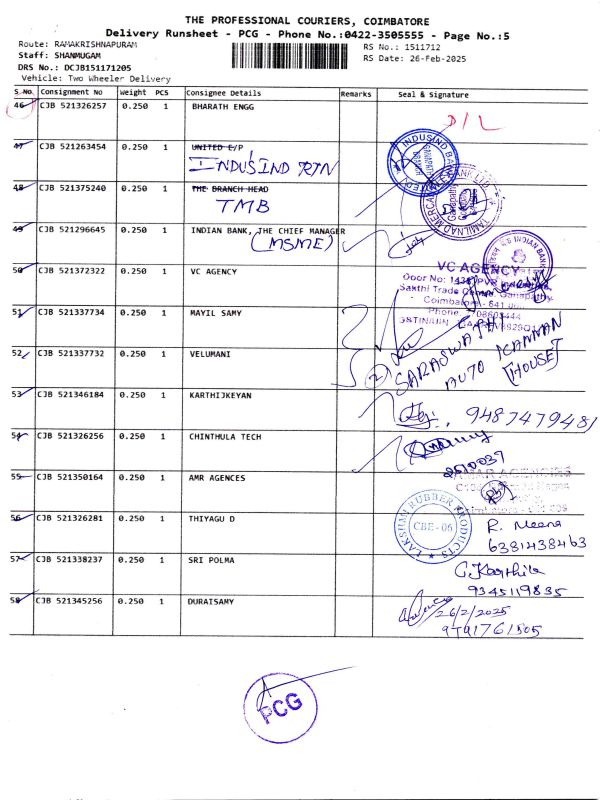 THE PROFESSIONAL COURIERS, COIMBATORE
Delivery Runsheet - PCG - Phone No.:0422-3505555 - Page No.:5
Route: RAMAKRISHNAPURAM
RS No.: 1511712
Staff: SHANMUGAM
RS Date: 26-Feb-2025
DRS No.: DCJB151171205
Vehicle: Two Wheeler Delivery
S.No. Consignment No Weight PCS Consignee Details Remarks Seal & Signature
46 CJB 521326257 0.250 1 BHARATH ENGG
D/L
47 CJB 521263454 0.250 1 UNITED E/P
INDUSIND RTN
INDUSIND BANK
48 CJB 521375240 0.250 1 THE BRANCH HEAD
TMB
TAMILNAD MERCANTILE BANK LTD
Ganapathy
49 CJB 521296645 0.250 1 INDIAN BANK, THE CHIEF MANAGER
(MSME)
INDIAN BANK
50 CJB 521372322 0.250 1 VC AGENCY
VC AGENCY
Door No:
Sakthi Trade Ganapathy
Coimbatore - 641
Phone
51 CJB 521337734 0.250 1 MAYIL SAMY
SARASWATHI
52 CJB 521337732 0.250 1 VELUMANI
(2) AUTO KANNAN
[HOUSE]
53 CJB 521346184 0.250 1 KARTHIJKEYAN
9487479481
54 CJB 521326256 0.250 1 CHINTHULA TECH
2510039
55 CJB 521350164 0.250 1 AMR AGENCES
AGENCIES
56 CJB 521326281 0.250 1 THIYAGU D
LAKSHMI RUBBER PRODUCTS
CBE - 06
R. Meena
6381438463
57 CJB 521338237 0.250 1 SRI POLMA
C. Karthika
9345119835
58 CJB 521345256 0.250 1 DURAISAMY
26/2/2025
9791761505
PCG